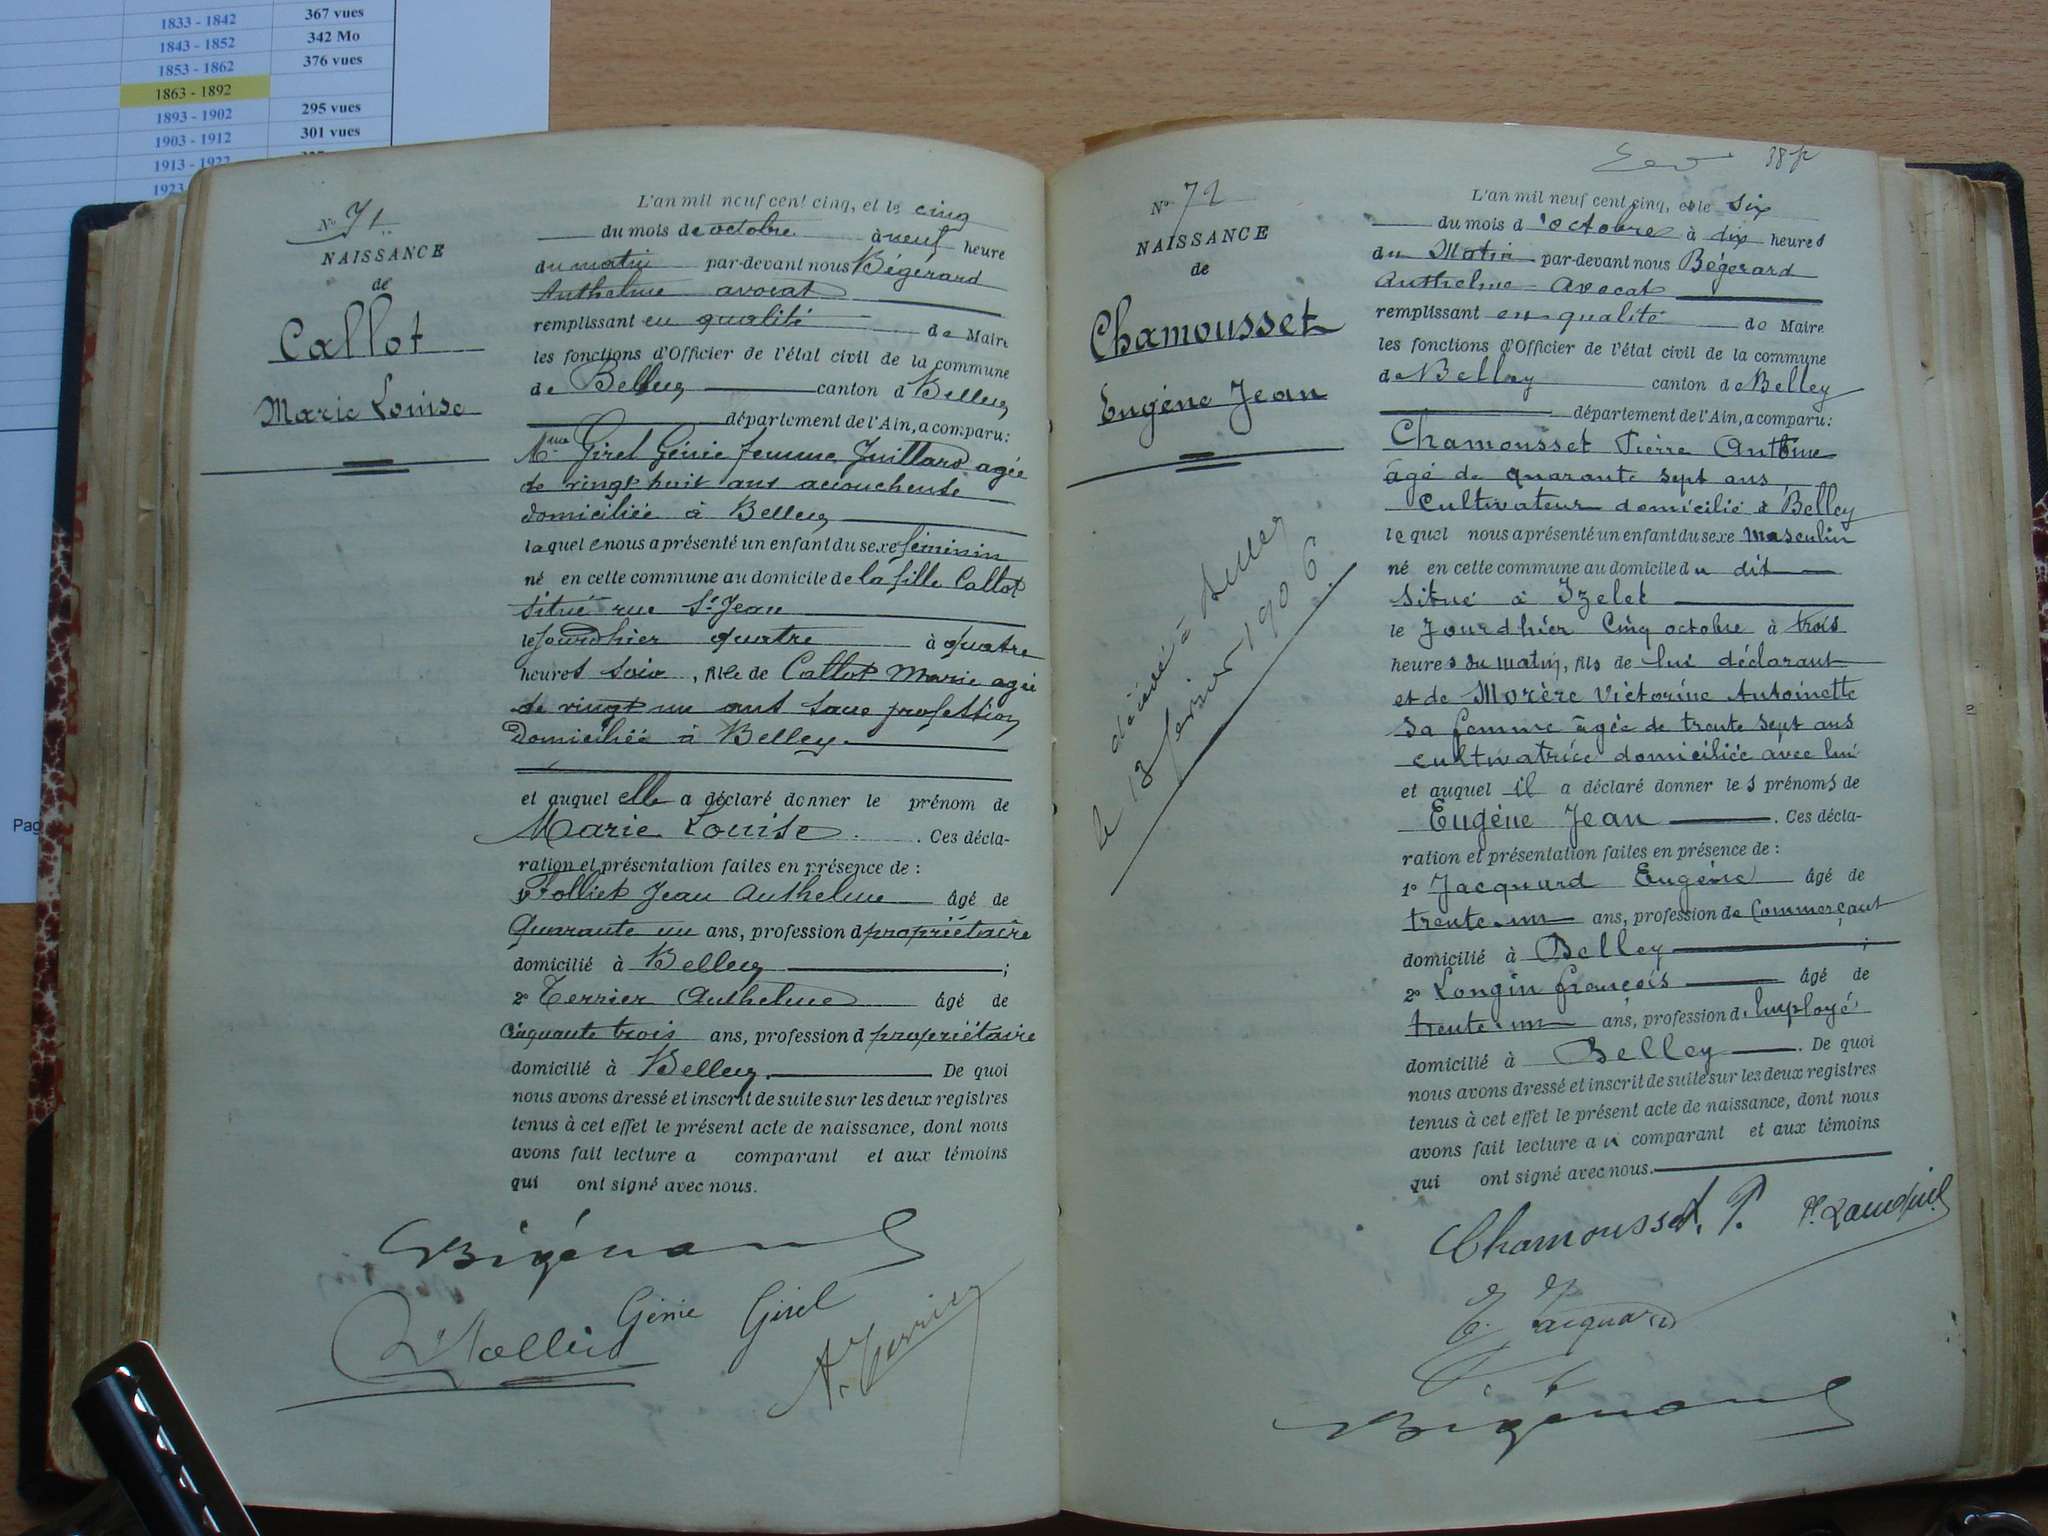 1833 - 1842 367 vues
1843 - 1852 342 Mo
1853 - 1862 376 vues
1863 - 1892
1893 - 1902 295 vues
1903 - 1912 301 vues
1913 - 1922
1923
Pag
N° 71
NAISSANCE
de
Callot
Marie Louise
L'an mil neuf cent cinq, et le cinq
du mois de octobre à neuf heure
du matin par-devant nous Bégérard
Anthelme avocat
remplissant en qualité de Maire
les fonctions d'Officier de l'état civil de la commune
de Belley canton d Belley
département de l'Ain, a comparu:
Mme Girel Génie femme Juillard agée
de vingt huit ans accoucheuse
domiciliée à Belley
laquelle nous a présenté un enfant du sexe féminin
né en cette commune au domicile de la fille Callot
situé rue St Jean
le jourdhier quatre à quatre
heures soir, fille de Callot Marie agée
de vingt un ans sans profession
Domiciliée à Belley.
et auquel elle a déclaré donner le prénom de
Marie Louise. Ces décla-
ration et présentation faites en présence de :
1° Folliet Jean Anthelme âgé de
Quarante un ans, profession d propriétaire
domicilié à Belley ;
2° Terrier Anthelme âgé de
Cinquante trois ans, profession d propriétaire
domicilié à Belley. De quoi
nous avons dressé et inscrit de suite sur les deux registres
tenus à cet effet le présent acte de naissance, dont nous
avons fait lecture a comparant et aux témoins
qui ont signé avec nous.
Bégérard
Génie Girel
Folliet
A. Terrier
38
N° 72
NAISSANCE
de
Chamousset
Eugène Jean
décédé à Belley
le 13 février 1906
L'an mil neuf cent cinq, et le six
du mois d'octobre à dix heures
du Matin par-devant nous Bégerard
Anthelme Avocat
remplissant en qualité de Maire
les fonctions d'Officier de l'état civil de la commune
de Belley canton de Belley
département de l'Ain, a comparu:
Chamousset Pierre Antoine
âgé de quarante sept ans
Cultivateur domicilié à Belley
lequel nous a présenté un enfant du sexe masculin
né en cette commune au domicile du dit
situé à Izelet
le Jourdhier Cinq octobre à trois
heures du matin, fils de lui déclarant
et de Morère Victorine Antoinette
sa femme âgée de trente sept ans
cultivatrice domiciliée avec lui
et auquel il a déclaré donner les prénoms de
Eugène Jean. Ces décla-
ration et présentation faites en présence de :
1° Jacquard Eugène âgé de
trente un ans, profession de Commerçant
domicilié à Belley ;
2° Longin françois âgé de
trente un ans, profession d'Employé
domicilié à Belley. De quoi
nous avons dressé et inscrit de suite sur les deux registres
tenus à cet effet le présent acte de naissance, dont nous
avons fait lecture au comparant et aux témoins
qui ont signé avec nous.
Chamousset. P.
E. Jacquard
Bégérard